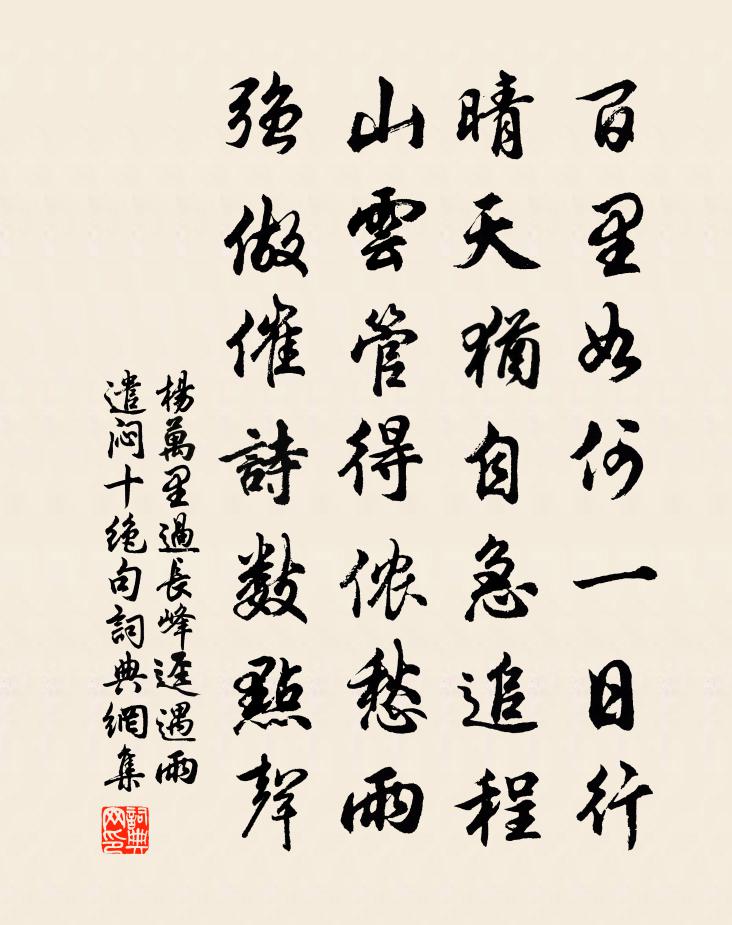 百里如何一日行
晴天猶自急追程
山雲管得儂愁雨
強做催詩數點聲
楊萬里過長峰逕遇雨
遣悶十絶句詞典網集
詞典网印